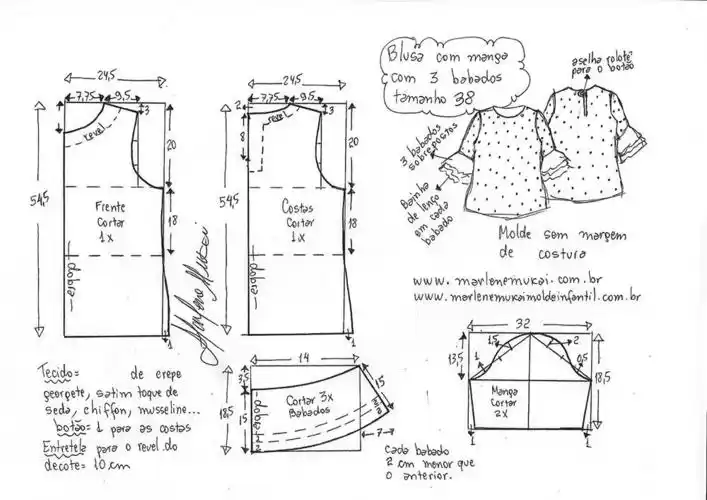 Blusa com manga
com 3 babados
tamanho 38
aselha rolotê
para o botão
3 babados
sobrepostos
Bainha
de lenço
em cada
babado
Molde sem margem
de costura
www.marlenemukai.com.br
www.marlenemukaimoldeinfantil.com.br
24,5
7,75
9,5
3
revel
20
54,5
Frente
Cortar
1x
18
dobra
1
24,5
7,75
9,5
2
3
revel
8
20
54,5
Costas
Cortar
1x
18
dobra
1
Marlene Mukai
14
3,5
18,5
15
Cortar 3x
Babados
dobra
15
7
32
13,5
1,5
2
1
0,5
18,5
Manga
Cortar
2x
1
1
Tecido= de crepe
georgete, satim toque de
seda, chiffon, musseline...
botão= 1 para as costas
Entretela para o revel do
decote= 10 cm
Cada babado
2 cm menor que
o anterior.